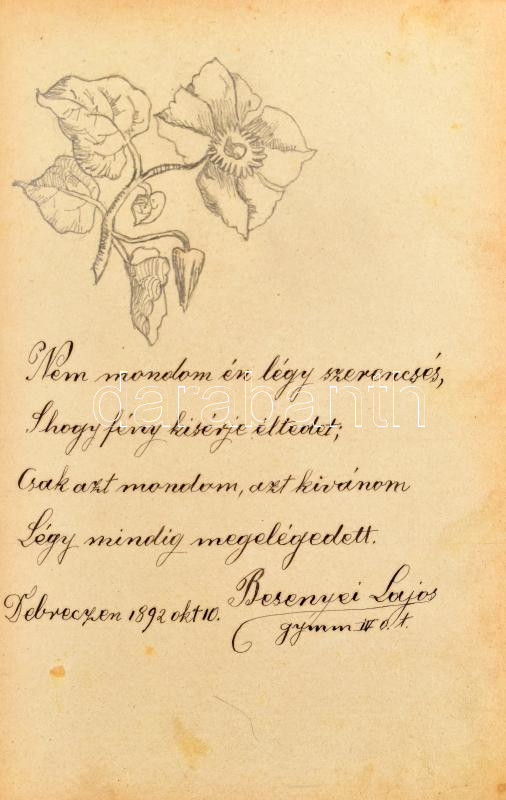 Nem mondom én légy szerencsés,
S hogy fény kisérje éltedet;
Csak azt mondom, azt kivánom
Légy mindig megelégedett.
Debreczen 1892 okt 10. Besenyei Lajos
gymm IV o. t.
darabanth